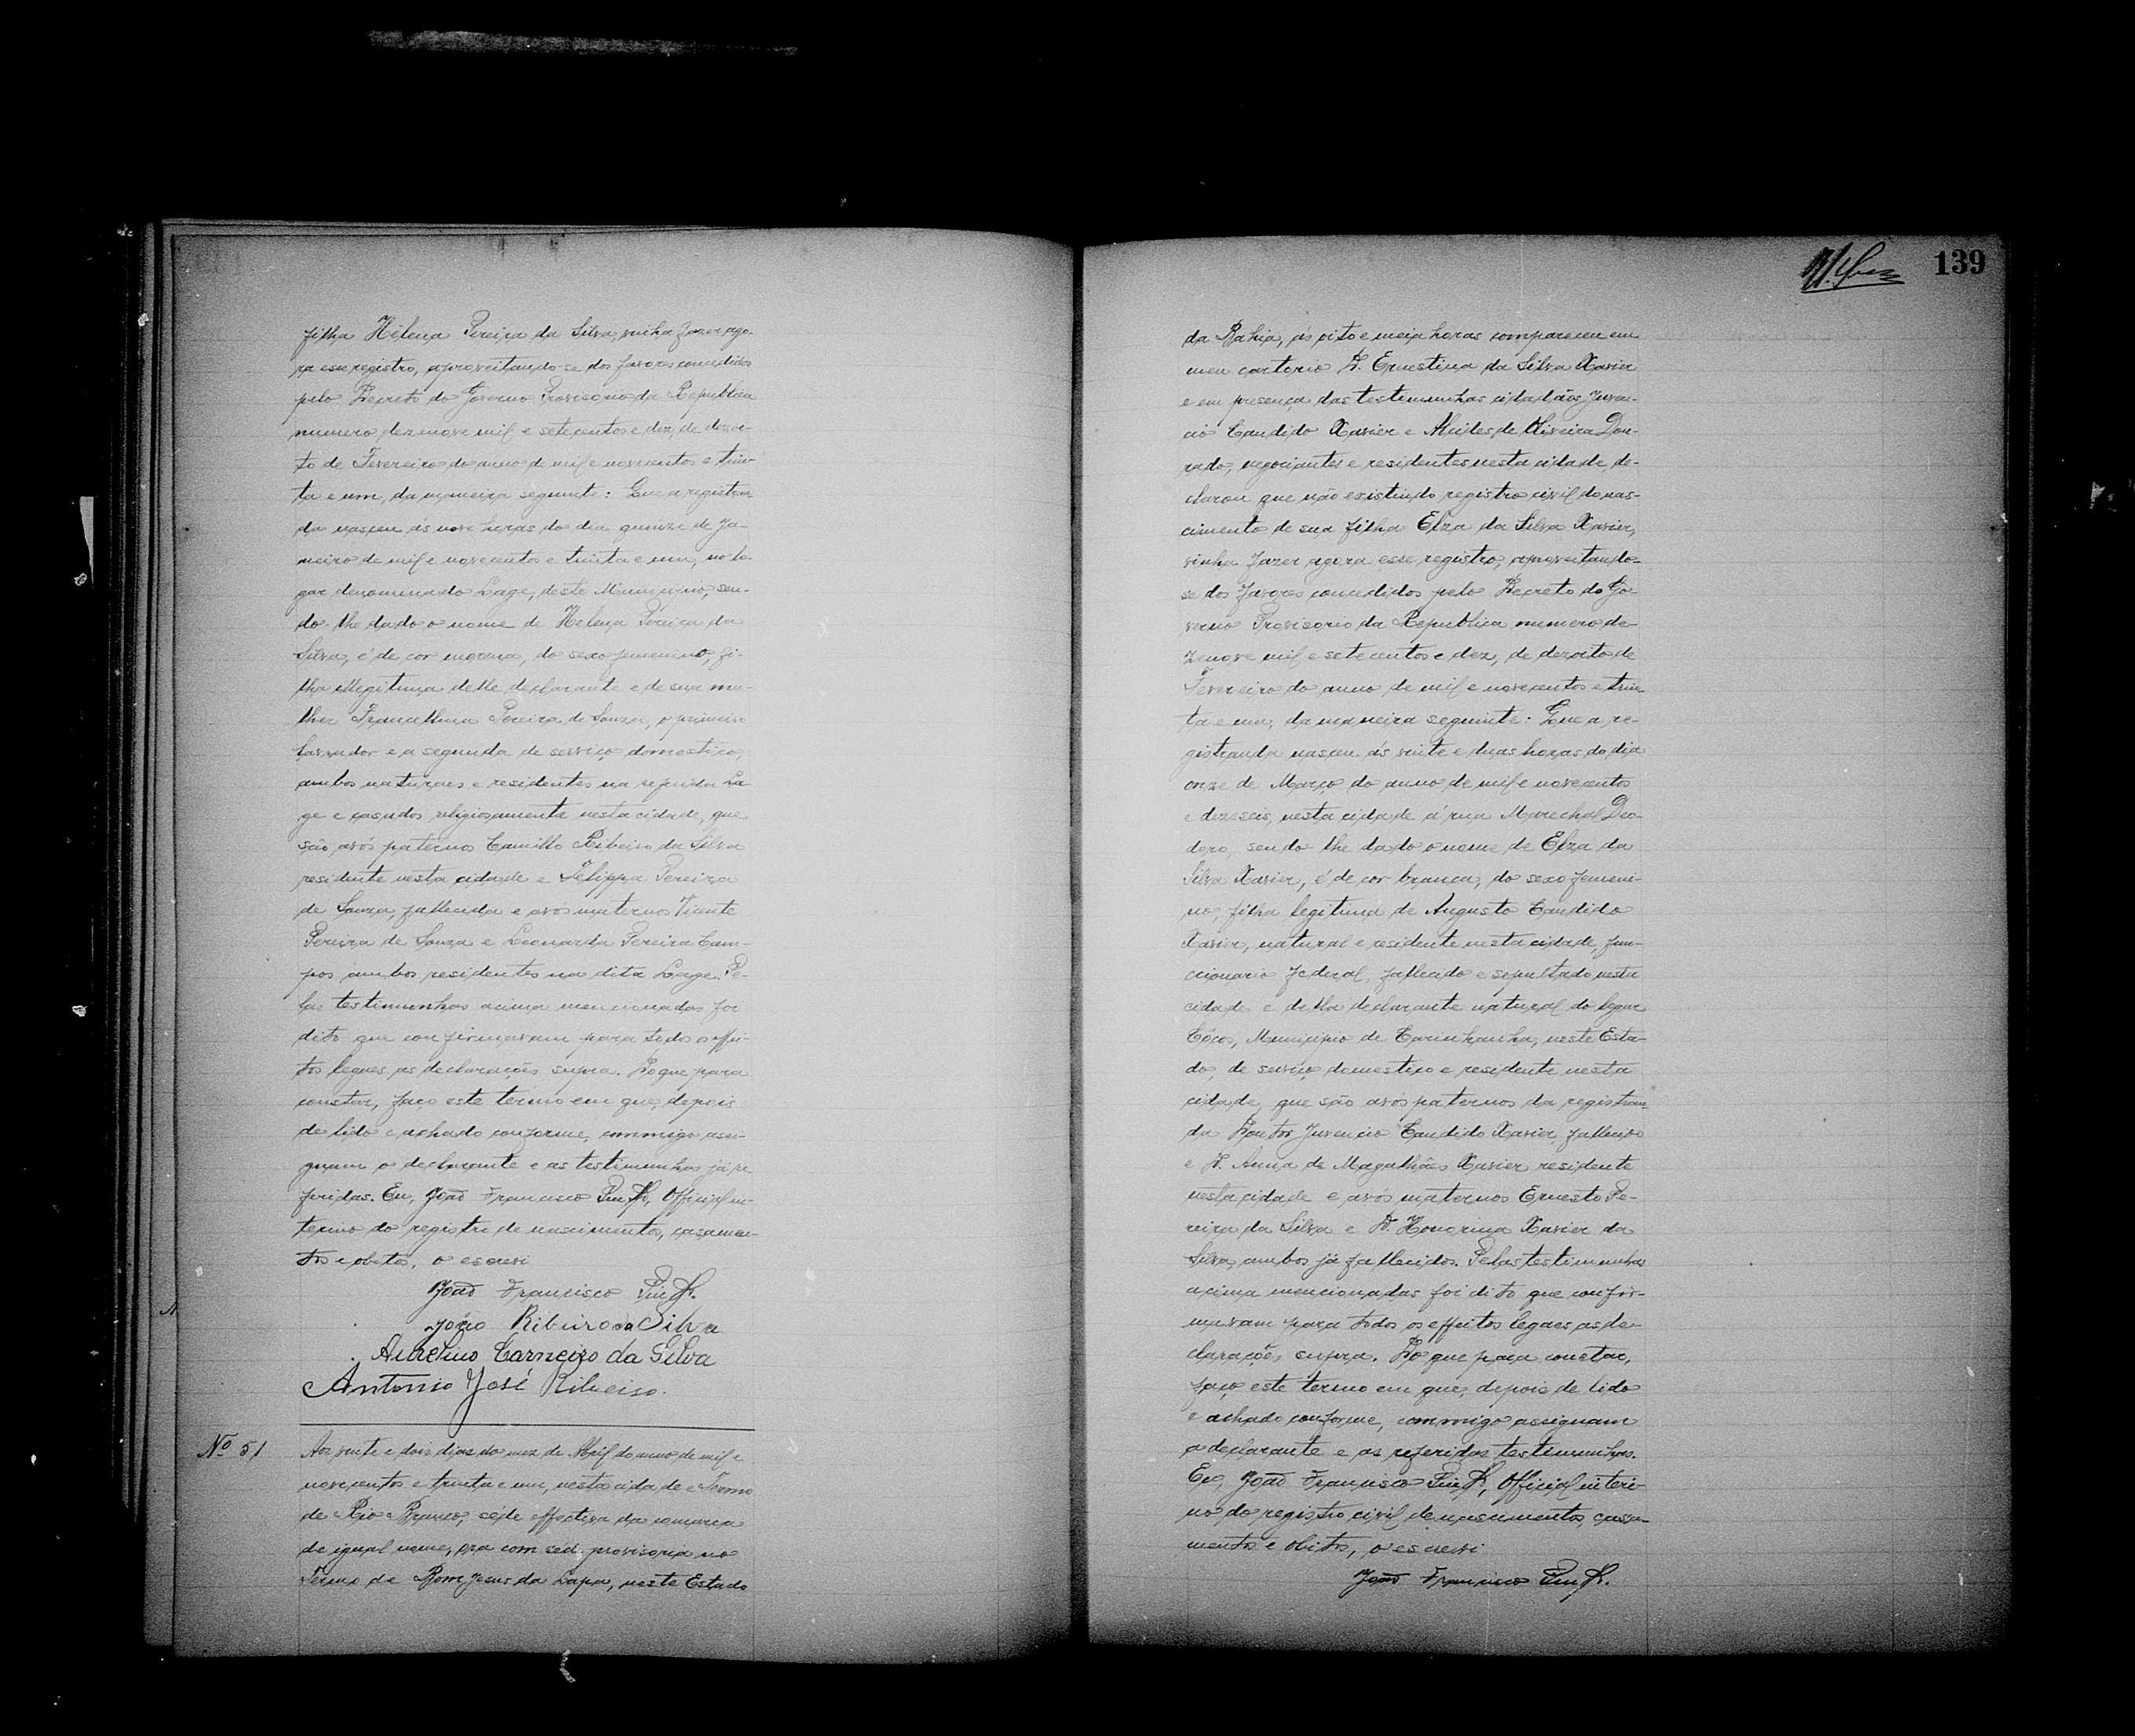 filha Helena Pereira da Silva, vinha fazer ago-
ra esse registro, aproveitando-se dos favores concedidos
pelo Decreto do Governo Provisorio da Republica
numero dezenove mil e setecentos e dez, de dezoi-
to de Fevereiro do anno de mil e novecentos e trin-
ta e um, da maneira seguinte: Que a registran
da nasceu ás nove horas do dia quinze de Ja-
neiro de mil e novecentos e trinta e um, no lo-
gar denominado Lage, deste Municipio, sen-
do-lhe dado o nome de Helena Pereira da
Silva, é de cor morena, do sexo femenino, fi-
lha illegitima delle declarante e de sua mu-
lher Francellina Pereira de Souza, o primeiro
lavrador e a segunda de serviço domestico,
ambos naturaes e residentes na referida La
ge e casados religiosamente nesta cidade, que
são avós paternos Camillo Ribeiro da Silva
residente nesta cidade e Felippa Pereira
de Souza, fallecida e avós maternos Vicente
Pereira de Souza e Leonarda Pereira Cam-
pos ambos residentes na dita Lage. Pe-
las testimunhas acima mencionadas foi
dito que confirmavam para todos os effei-
tos legaes as declarações supra. Do que para
constar, faço este termo em que, depois
de lido e achado conforme, commigo assi-
gnam o declarante e as testimunhas já re
feridas. Eu, João Francisco Official in-
terino do registro de nascimentos, casamen-
tos e obitos, o escrevi
João Francisco
João Ribeiro da Silva
Aurelino Carneiro da Silva
Antonio José Ribeiro.
Nº 51
Aos vinte e dois dias do mez de Abril do anno de mil e
novecentos e trinta e um, nesta cidade e Termo
de Rio Branco, séde effectiva da comarca
de igual nome, ora com sede provisoria no
Termo de Bom Jesus da Lapa, neste Estado
139
da Bahia, ás oito e meia horas compareceu em
meu cartorio D. Ernestina da Silva Xavier
e em presença das testimunhas cidadãos Juven-
cio Candido Xavier e Alcides de Oliveira Dou-
rado, negociantes e residentes nesta cidade, de-
clarou que não existindo registro civil do nas-
cimento de sua filha Elza da Silva Xavier,
vinha fazer agora esse registro, aproveitando-
se dos favores concedidos pelo Decreto do Go-
verno Provisorio da Republica numero de-
zenove mil e setecentos e dez, de dezoito de
Fevereiro do anno de mil e novecentos e trin
ta e um, da maneira seguinte: Que a re-
gistranda nasceu ás vinte e duas horas do dia
onze de Março do anno de mil e novecentos
e dezeseis, nesta cidade á rua Marechal Deo-
doro, sendo-lhe dado o nome de Elza da
Silva Xavier, é de cor branca, do sexo femeni-
no, filha legitima de Augusto Candido
Xavier, natural e residente nesta cidade, fun-
ccionario federal, fallecido e sepultado nesta
cidade e della declarante natural do logar
Côcos, Municipio de Carinhanha, neste Esta-
do, de serviço domestico e residente nesta
cidade, que são avós paternos da registran-
da Doutor Juvencio Candido Xavier fallecido
e D. Anna de Magalhães Xavier residente
nesta cidade e avós maternos Ernesto Pe-
reira da Silva e D. Honorina Xavier da
Silva, ambos já fallecidos. Pelas testimunhas
acima mencionadas foi dito que confir-
mavam para todos os effeitos legaes as de-
clarações supra. Do que para constar,
faço este termo em que, depois de lido
e achado conforme, commigo assignam
a declarante e as referidas testimunhas.
Eu, João Francisco Official interi-
no do registro civil de nascimentos, casa-
mentos e obitos, o escrevi
João Francisco